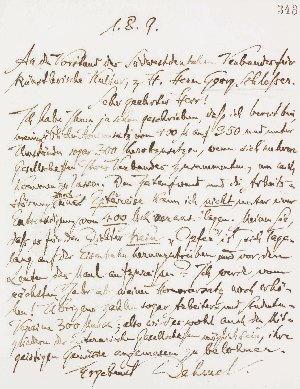 343
1. 8. 9.
An den Vorstand des Südwestdeutschen Verbandes für
künstlerische Kultur, z. H. Herrn Georg
Sehr geehrter Herr!
Ich habe Ihnen ja schon geschrieben, daß ich bereit bin
von 400 M auf 350 und unter
Umständen sogar 300 herabzusetzen, wenn sich mehrere
Gesellschaften Ihres Verbandes zusammentun, um mich
kommen zu lassen. Den Zeitaufwand und die Arbeits-
kann ich nicht unter einer
Entschädigung von 400 Mk
daß es für den Dichter kein Opfer ist, sich Tage-
lang auf der Eisenbahn herumzutreiben und vor den
Leuten das Maul aufzureißen? Ich werde vom
nächsten Jahr ab meinen Honorarsatz noch erhö-
hen! Übrigens zahlen sogar Arbeiter- und Studenten-
Vereine 300 Mark; also wird es wohl auch den Mit-
gliedern der Literarischen Gesellschaften möglich sein, ihre
geistigen Genüsse angemessen zu belohnen.
Ergebenst Dehmel.